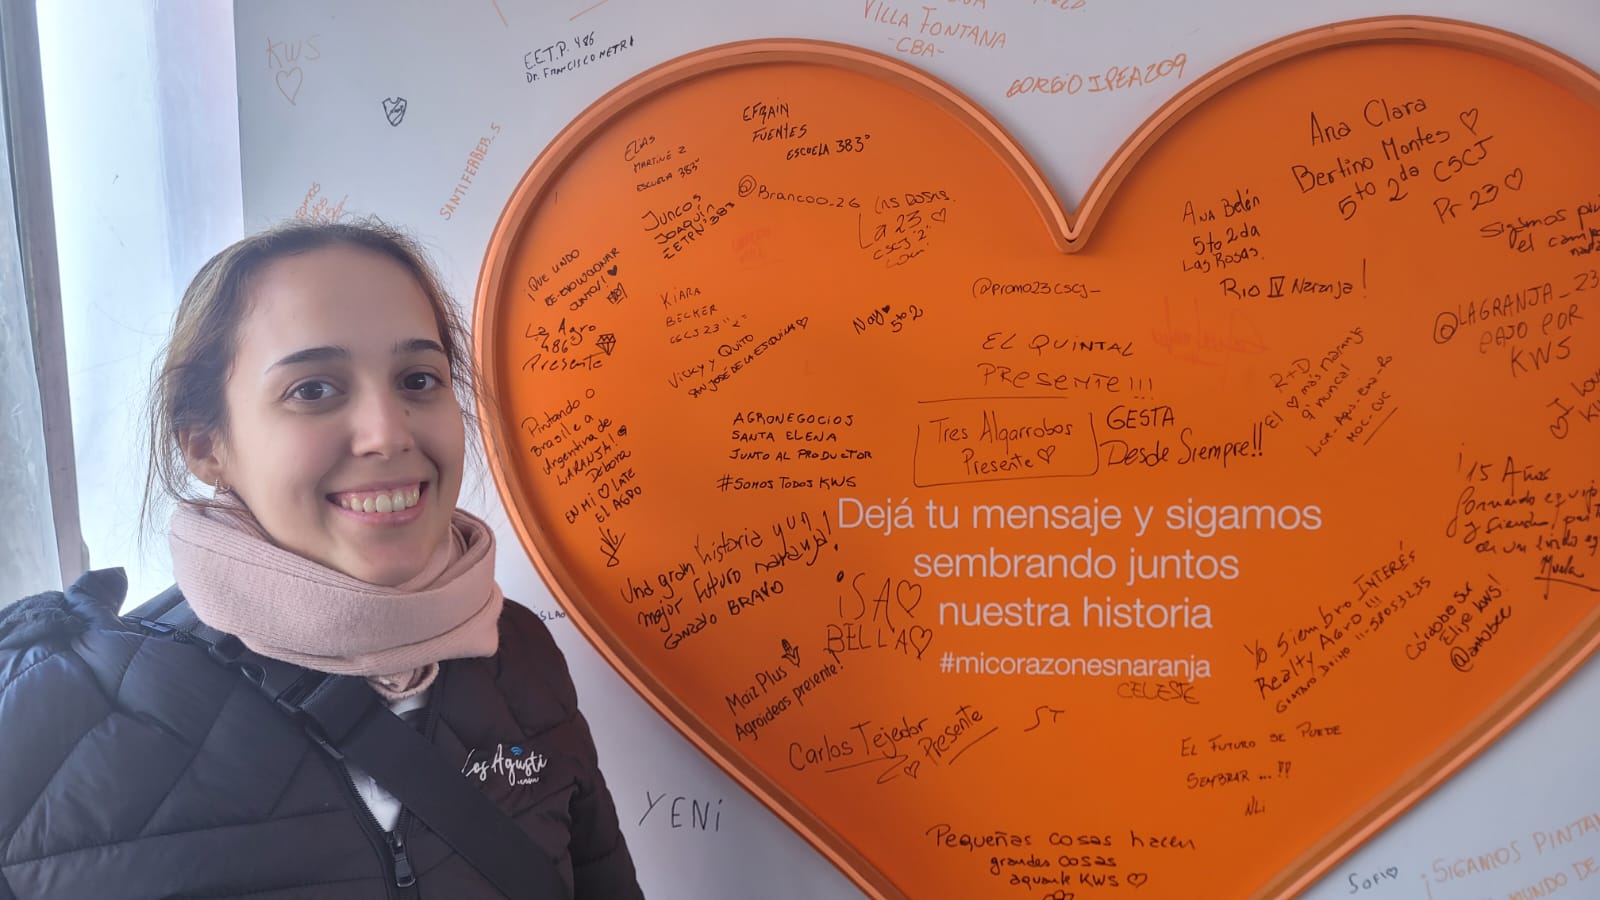 KWS
E.E.T.P. 486
Dr. FRANCISCO NETRI
SANTIFERBEB_S
VILLA FONTANA
-CBA-
SORGO IPEA209
ELIAS
MARTINEZ
ESCUELA 383°
EFRAIN
FUENTES
ESCUELA 383°
@Brancoo_26
JUNCOS
JOAQUÍN
EETPN°383
LAS DOSIS.
La 23.
CSCJ "2"
¡QUE LINDO
RE-EVOLUCIONAR
JUNTOS!
La Agro
486
Presente
KIARA
BECKER
CSCJ 23 "2"
VICKY Y QUITO
SAN JOSÉ DE LA ESQUINA
Noy
5to 2
@promo23cscj_
EL QUINTAL
PRESENTE!!!
Tres Algarrobos
Presente
GESTA
Desde Siempre!!
AGRONEGOCIOS
SANTA ELENA
JUNTO AL PRODUCTOR
#SOMOS TODOS KWS
Pintando o
Brasil e a
Argentina de
LARANJA!
Debora
EN MI LATE
EL AGRO
Ana Clara
Bertino Montes
5to 2da CSCJ
Pr 23
ANA Belén
5to 2da
Las Rosas.
RIO IV Naranja!
Sigamos
el campo
@LAGRANJA_23
PAJO POR
KWS
R+D
más naranja
q' nunca!
El
MOC-CUC
I Love
15 Años
formando equipo
Una gran historia y un
mejor futuro naranja!
Gonzalo BRAVO
Dejá tu mensaje y sigamos
sembrando juntos
nuestra historia
#micorazonesnaranja
CELESTE
¡SA
BELLA
Maiz Plus
Agroideas presente!
Carlos Tejedor
Presente
ST
Yo Siembro INTERÉS
Realty AGRO!!!
11-58053235
Córdobesa
Elije KWS!
@antobec
EL FUTURO SE PUEDE
SEMBRAR ...!!
NLi
Pequeñas cosas hacen
grandes cosas
aguante KWS
Los Agusti
YENI
SOFI
¡SIGAMOS
MUNDO DE